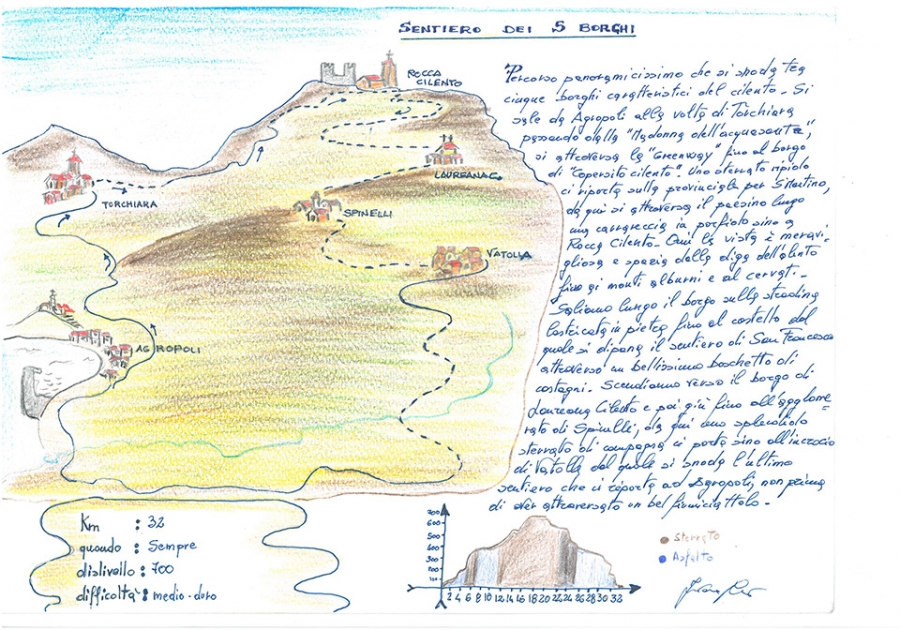 SENTIERO DEI 5 BORGHI
Percorso panoramicissimo che si snoda tra
cinque borghi caratteristici del cilento - Si
sale da Agropoli alla volta di Torchiara
passando dalla "Madonna dell'acquasanta",
si attraversa la "Greenway" fino al borgo
di "Copersito cilento". Uno sterrato ripido
ci riporta sulla provinciale per S. Martino,
da qui si attraversa il paesino lungo
una carrareccia in porfido sino a
Rocca Cilento. Qui la vista è meravi-
gliosa e spazia dalla diga dell'alento
fino ai monti alburni e al cervati.-
Saliamo lungo il borgo sulla stradina
lastricata in pietra fino al castello dal
quale si dipana il sentiero di San Francesco
attraverso un bellissimo boschetto di
castagni. Scendiamo verso il borgo di
Laureana Cilento e poi giù fino all'agglome-
rato di Spinelli, da qui uno splendido
sterrato di campagna ci porta sino all'incrocio
di Vatolla dal quale si snoda l'ultimo
sentiero che ci riporta ad Agropoli, non prima
di aver attraversato un bel fiumiciattolo.-
ROCCA
CILENTO
LAUREANA C.
TORCHIARA
SPINELLI
VATOLLA
AGROPOLI
Km : 32
quando : Sempre
dislivello : 700
difficoltà : medio-duro
700
600
500
400
300
200
100
2 4 6 8 10 12 14 16 18 20 22 24 26 28 30 32
Sterrato
Asfalto